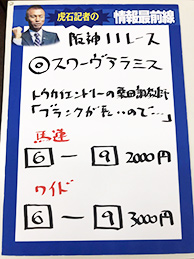 虎石記者の
情報最前線
阪神11レース
◎スワーヴアラミス
トウカイエントリーの
「ブランクが長いので…」
馬連
6 － 9 2000円
ワイド
6 － 9 3000円